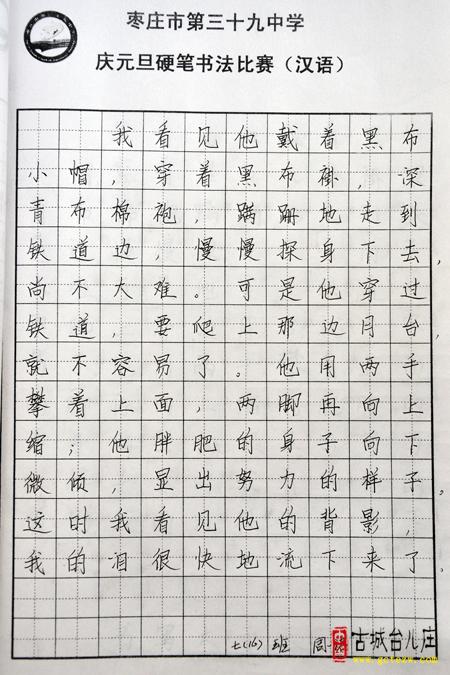 枣庄市第三十九中学
庆元旦硬笔书法比赛（汉语）
我看见他戴着黑布
小帽，穿着黑布褂，深
青布棉袍，蹒跚地走到
铁道边，慢慢探身下去，
尚不大难。可是他穿过
铁道，要爬上那边月台，
就不容易了。他用两手
攀着上面，两脚再向上
缩；他胖肥的身子向下
微倾，显出努力的样子。
这时我看见他的背影，
我的泪很快地流下来了。
七（16）班 周
古城台儿庄